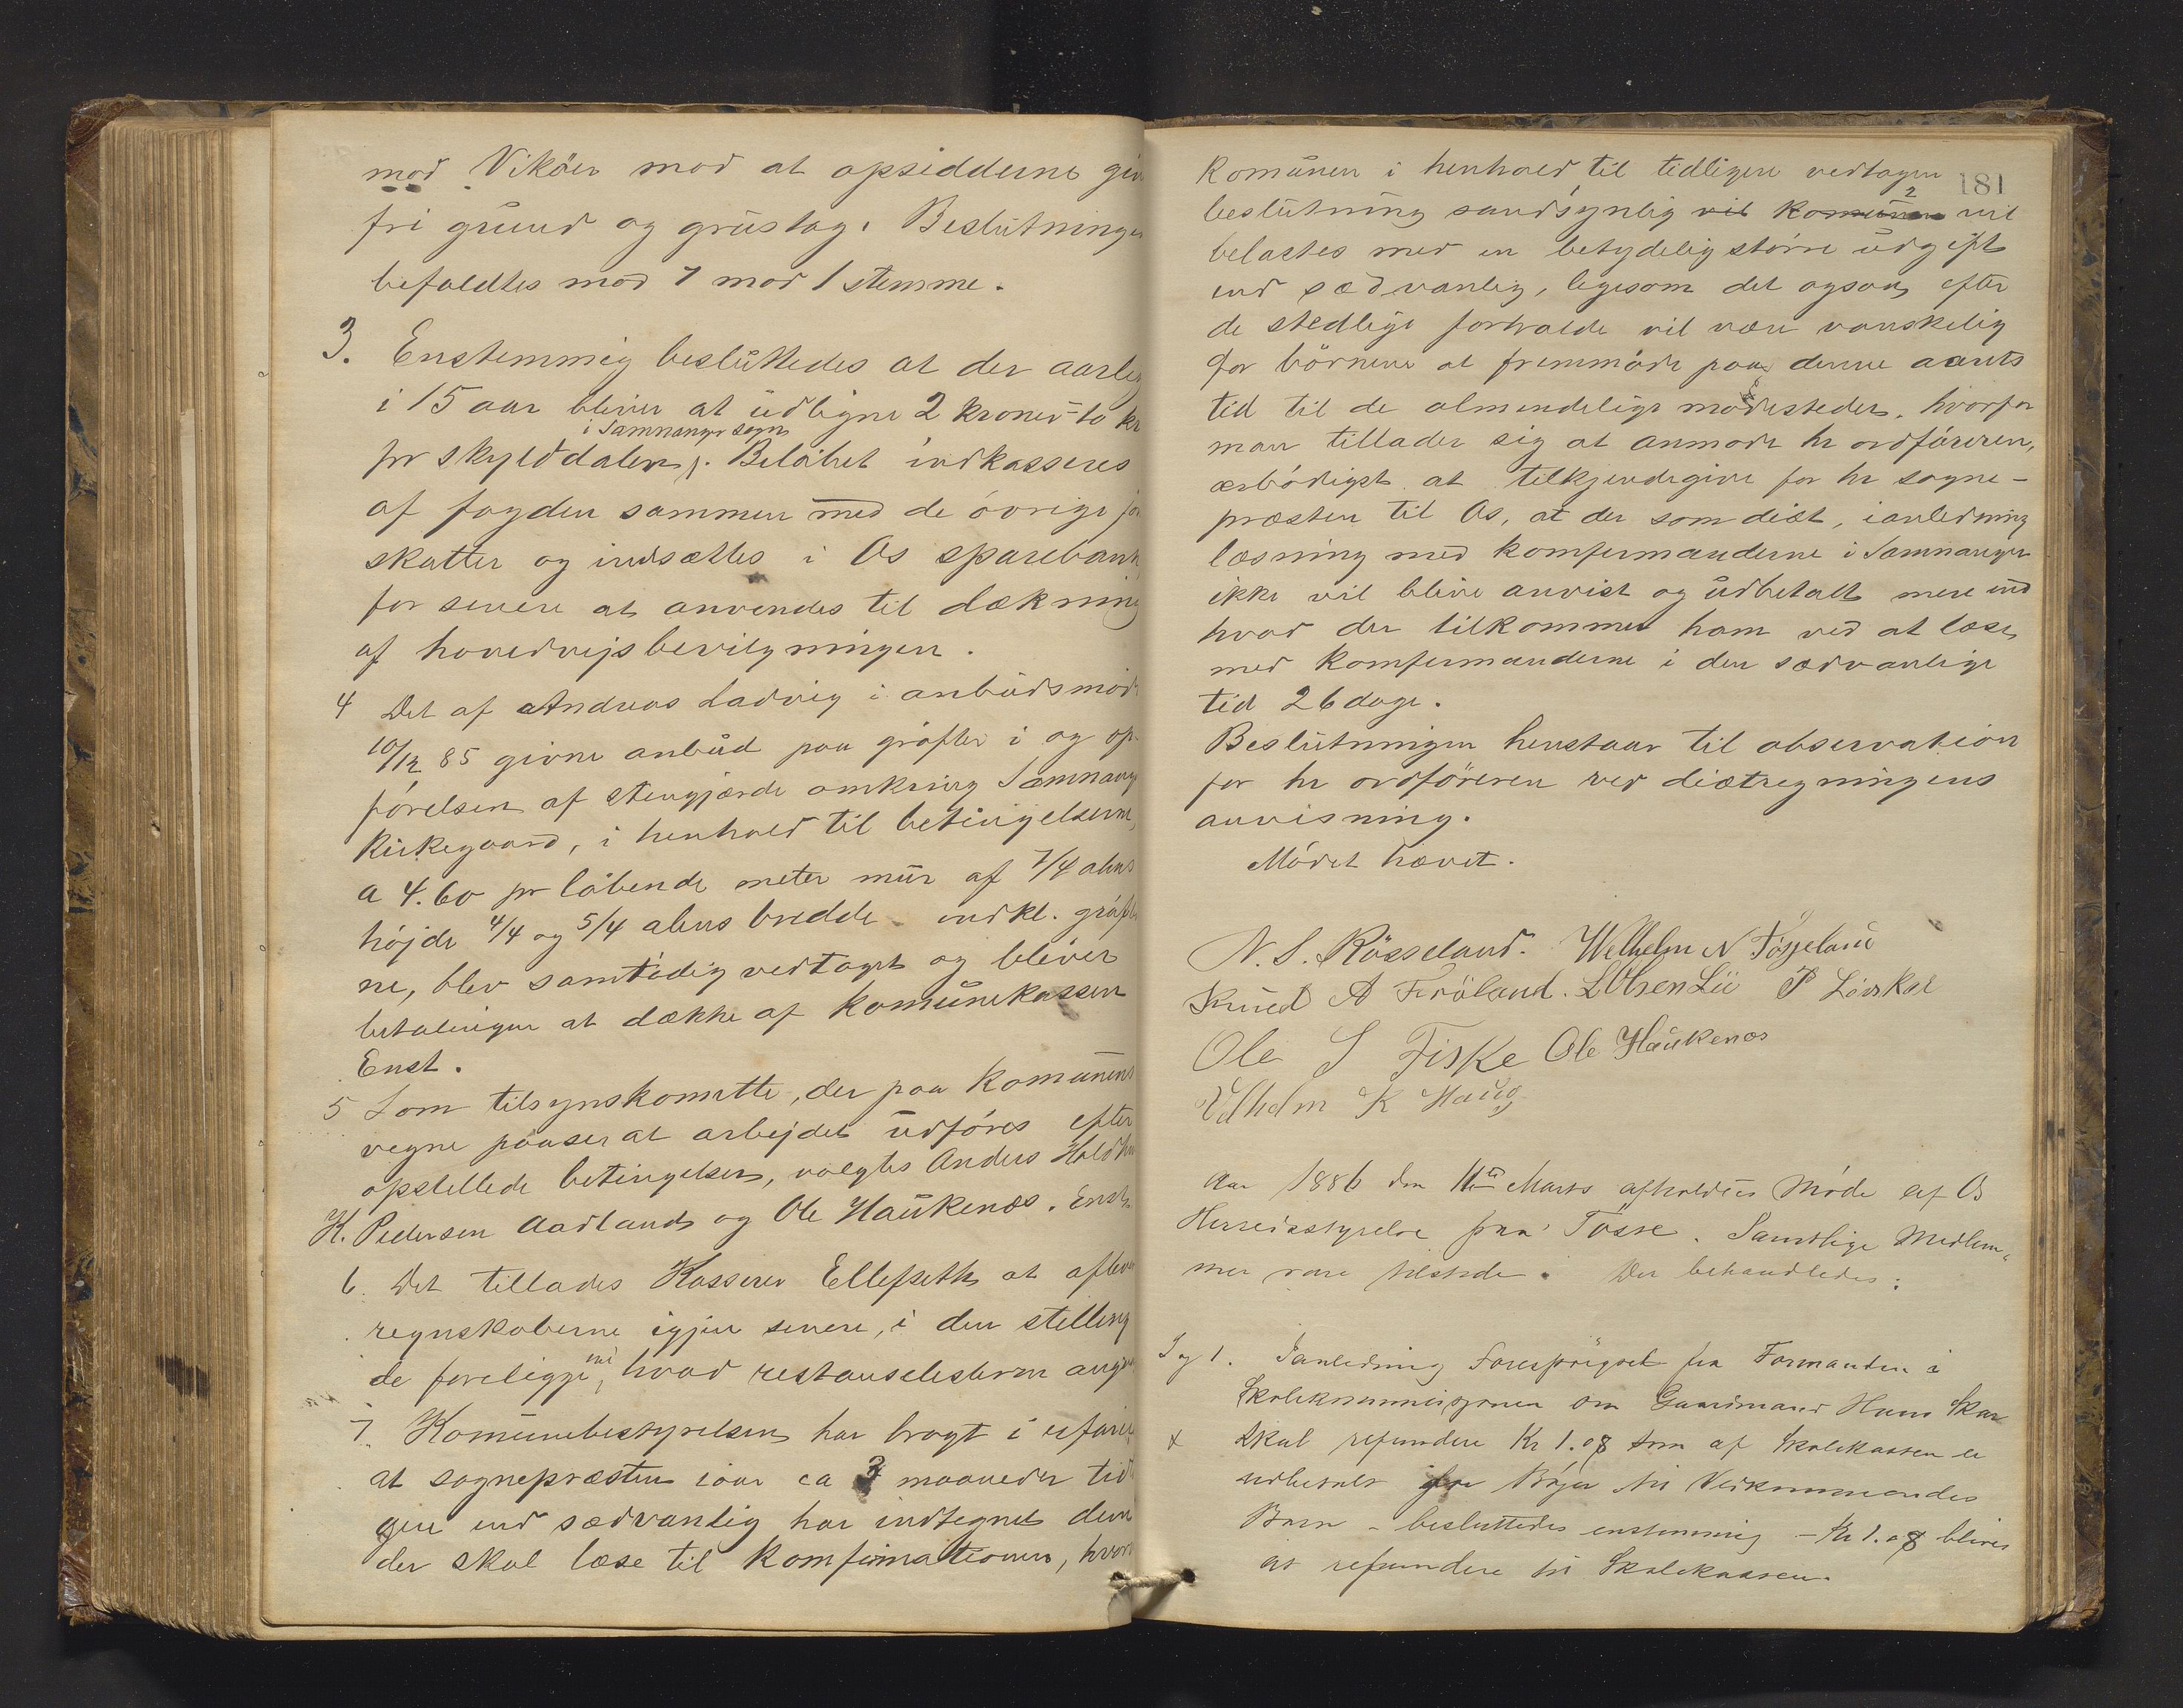 mod Vikøer mod at opsidderne giv
fri grund og grustag. Beslutninge
befaldtes mod 7 mod 1 stemme.
3. Enstemmig besluttedes at der aarlig
i 15 aar bliver at udligne 2 kroner - to kr
i Samnanger sogn
pr skylddaler. Beløbet indkasseres
af fogden sammen med de øvrige jor
skatter og indsættes i Os sparebank
for senere at anvendes til dækning
af hovedvejsbevilgningen.
4 Det af Andreas Ladvig i anbudsmøde
10/12 85 givne anbud paa grøfter i og op-
førelsen af stengjærde omkring Samnang
kirkegaard, i henhold til betingelserne,
a 4.60 pr løbende meter mur af 7/4 alens
højde 4/4 og 5/4 alens bredde indkl. grøfte
ne, blev samtidig vedtaget og bliver
betalingen at dække af komunekassen
Enst.
5 Som tilsynskomitte, der paa komunens
vegne paaser at arbejdet udføres efter
opstillede betingelser, valgtes Anders Hold
H. Pedersen Aadland og Ole Haukenæs. Enst.
6. Det tillades Kasserer Ellefseth at aflev
regnskaberne igjen senere, i den stilling
de foreligge nu, hvad restanselisterne ang
7. Komunebestyrelsen har bragt i erfarin
at sognepræsten iaar ca 3 maaneder tid
gere end sædvanlig har indtegnet dem
der skal læse til komfirmationen, hvor
181
komunen i henhold til tidligere vedtagen
beslutning sandsynlig vil komunen vil
belastes med en betydelig større udgift
end sædvanlig, ligesom det ogsaa efter
de stedlige forholde vil være vanskelig
for børnene at fremmøde paa denne aarets
tid til de almindelige mødesteder, hvorfor
man tillader sig at anmode hr ordføreren,
ærbødigst at tilkjendegive for hr sogne-
præsten til Os, at der som diæt, ianledning
læsning med komfirmanderne i Samnanger
ikke vil blive anvist og udbetalt mere end
hvad der tilkommer ham ved at læse
med komfirmanderne i den sædvanlige
tid 26 dage.
Beslutningen henstaar til observation
for hr ordføreren ved diætregningens
anvisning.
Mødet hævet.
N. S. Røsseland. Welhelm N Tøsseland
Knud A Frøland. L Olsen Lii P Løvskal
Ole S Fiske Ole Haukenæs
Vilhelm K Haug
Aar 1886 den 11te Marts afholdtes Møde af Os
Herredsstyrelse paa Tøsse. Samtlige Medlem-
mer vare tilstede. Der behandledes:
Sag 1. Ianledning Forespørgsel fra Formanden i
Skolekommisjonen om Gaardmand Hans Skar
skal refundere Kr 1.08 som af Skolekassen er
udbetalt for Bøger til Vedkommendes
Barn - besluttedes enstemmig - Kr 1.08 bliver
at refundere til Skolekassen.